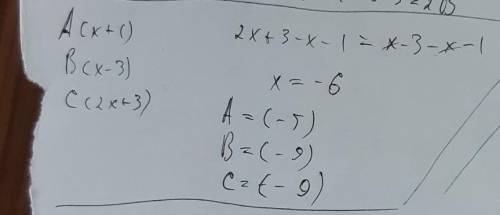 A(x+1)
B(x-3)
C(2x+3)
2x+3-x-1=x-3-x-1
x=-6
A=(-5)
B=(-9)
C=(-9)